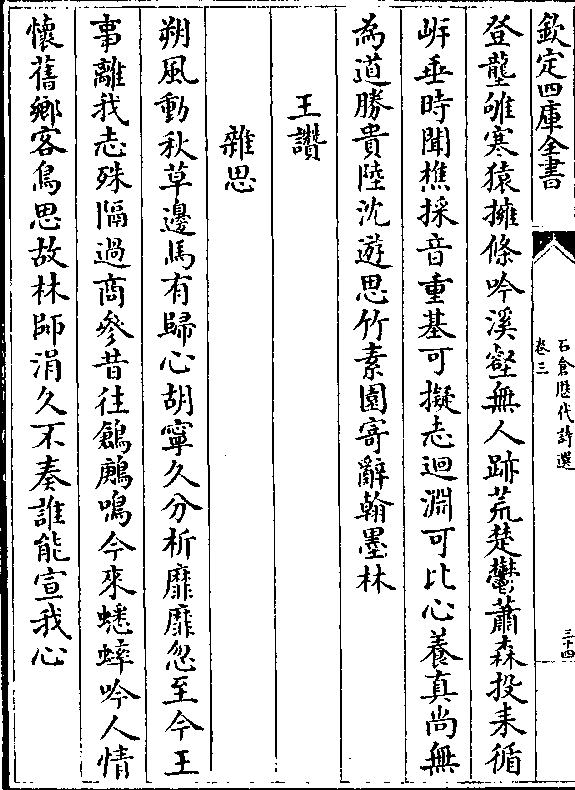 欽定四庫全書
石倉歷代詩選
卷三
三十四
登壟雊寒猿擁條吟溪壑無人跡荒楚鬱蕭森投耒循
岸垂時聞樵採音重基可擬志迴淵可比心養真尚無
為道勝貴陸沈遊思竹素園寄辭翰墨林
王讚
雜思
朔風動秋草邊馬有歸心胡寧久分析靡靡忽至今王
事離我志殊隔過商參昔往鶬鶊鳴今來蟋蟀吟人情
懷舊鄉客鳥思故林師涓久不奏誰能宣我心